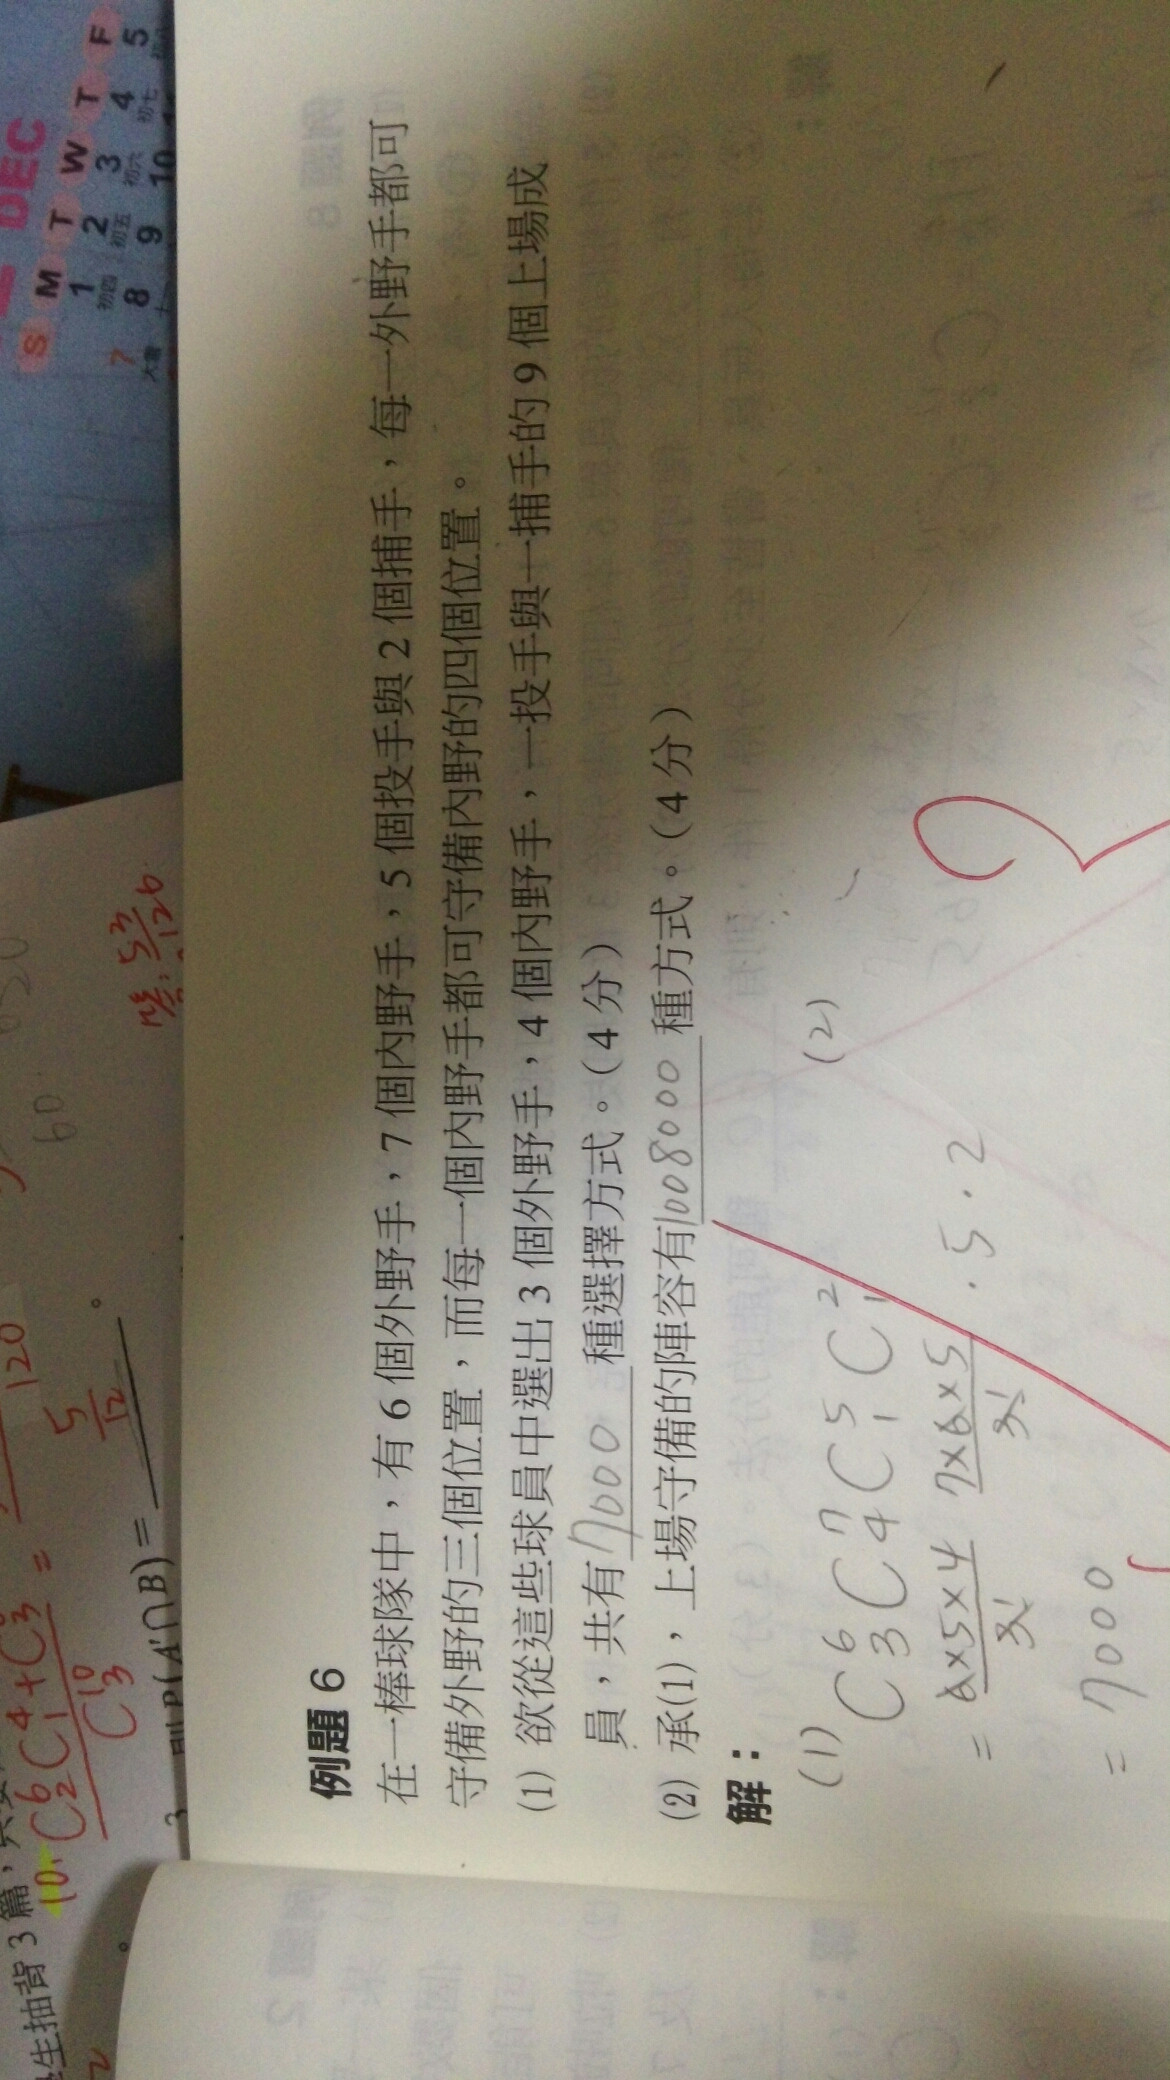 DEC
S M T W T F
1 2 3 4 5
初四 初五 初六 初七
7 8 9 10
大雪
60
120
5/12
10. C⁶₂C⁴₁+C⁶₃ / C¹⁰₃ =
P(A'∩B)=
生抽背3篇,
例題 6
在一棒球隊中,有 6 個外野手,7 個內野手,5 個投手與 2 個捕手,每一外野手都可
守備外野的三個位置,而每一個內野手都可守備內野的四個位置。
(1) 欲從這些球員中選出 3 個外野手,4 個內野手,一投手與一捕手的 9 個上場成
員,共有 7000 種選擇方式。(4 分)
(2) 承(1),上場守備的陣容有 1008000 種方式。(4 分)
解:
(1) (2)
C⁶₃ C⁷₄ C⁵₁ C²₁
= 6×5×4/3! 7×6×5/3! .5.2
= 7000